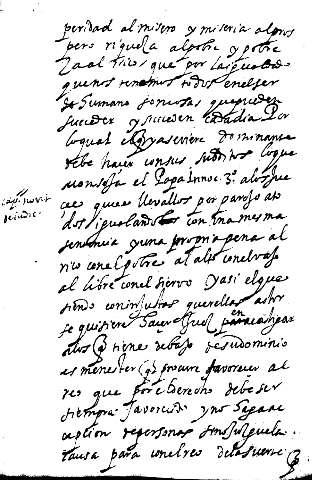 peridad al misero y miseria al pros
pero riqueza al pobre y pobre
za al rico que por la igualdad
que nos tenemos todos en el ser
de humano son cosas que pueden
suceder y suceden cada dia Por
lo qual el q ya se viere dominante
debe haver con sus subditos lo que
aconseja el Papa Innoc. 3º a los jue
ces quae llevallos por parejo a to
dos igualandolos con una mesma
sentencia y una propria pena al
rico con el pobre al alto con el baxo
al libre con el siervo y asi el que
siendo con injustas querellas
se quisiere hacer en castigar
a los q tiene debajo de su dominio
es menester q procure favorecer al
reo que por el derecho debe ser
siempre favorecido y no haga
ception de personas sino juzgue la
causa para con el reo de la suerte q